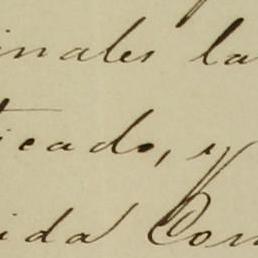 inales la
icado, y
ida Com